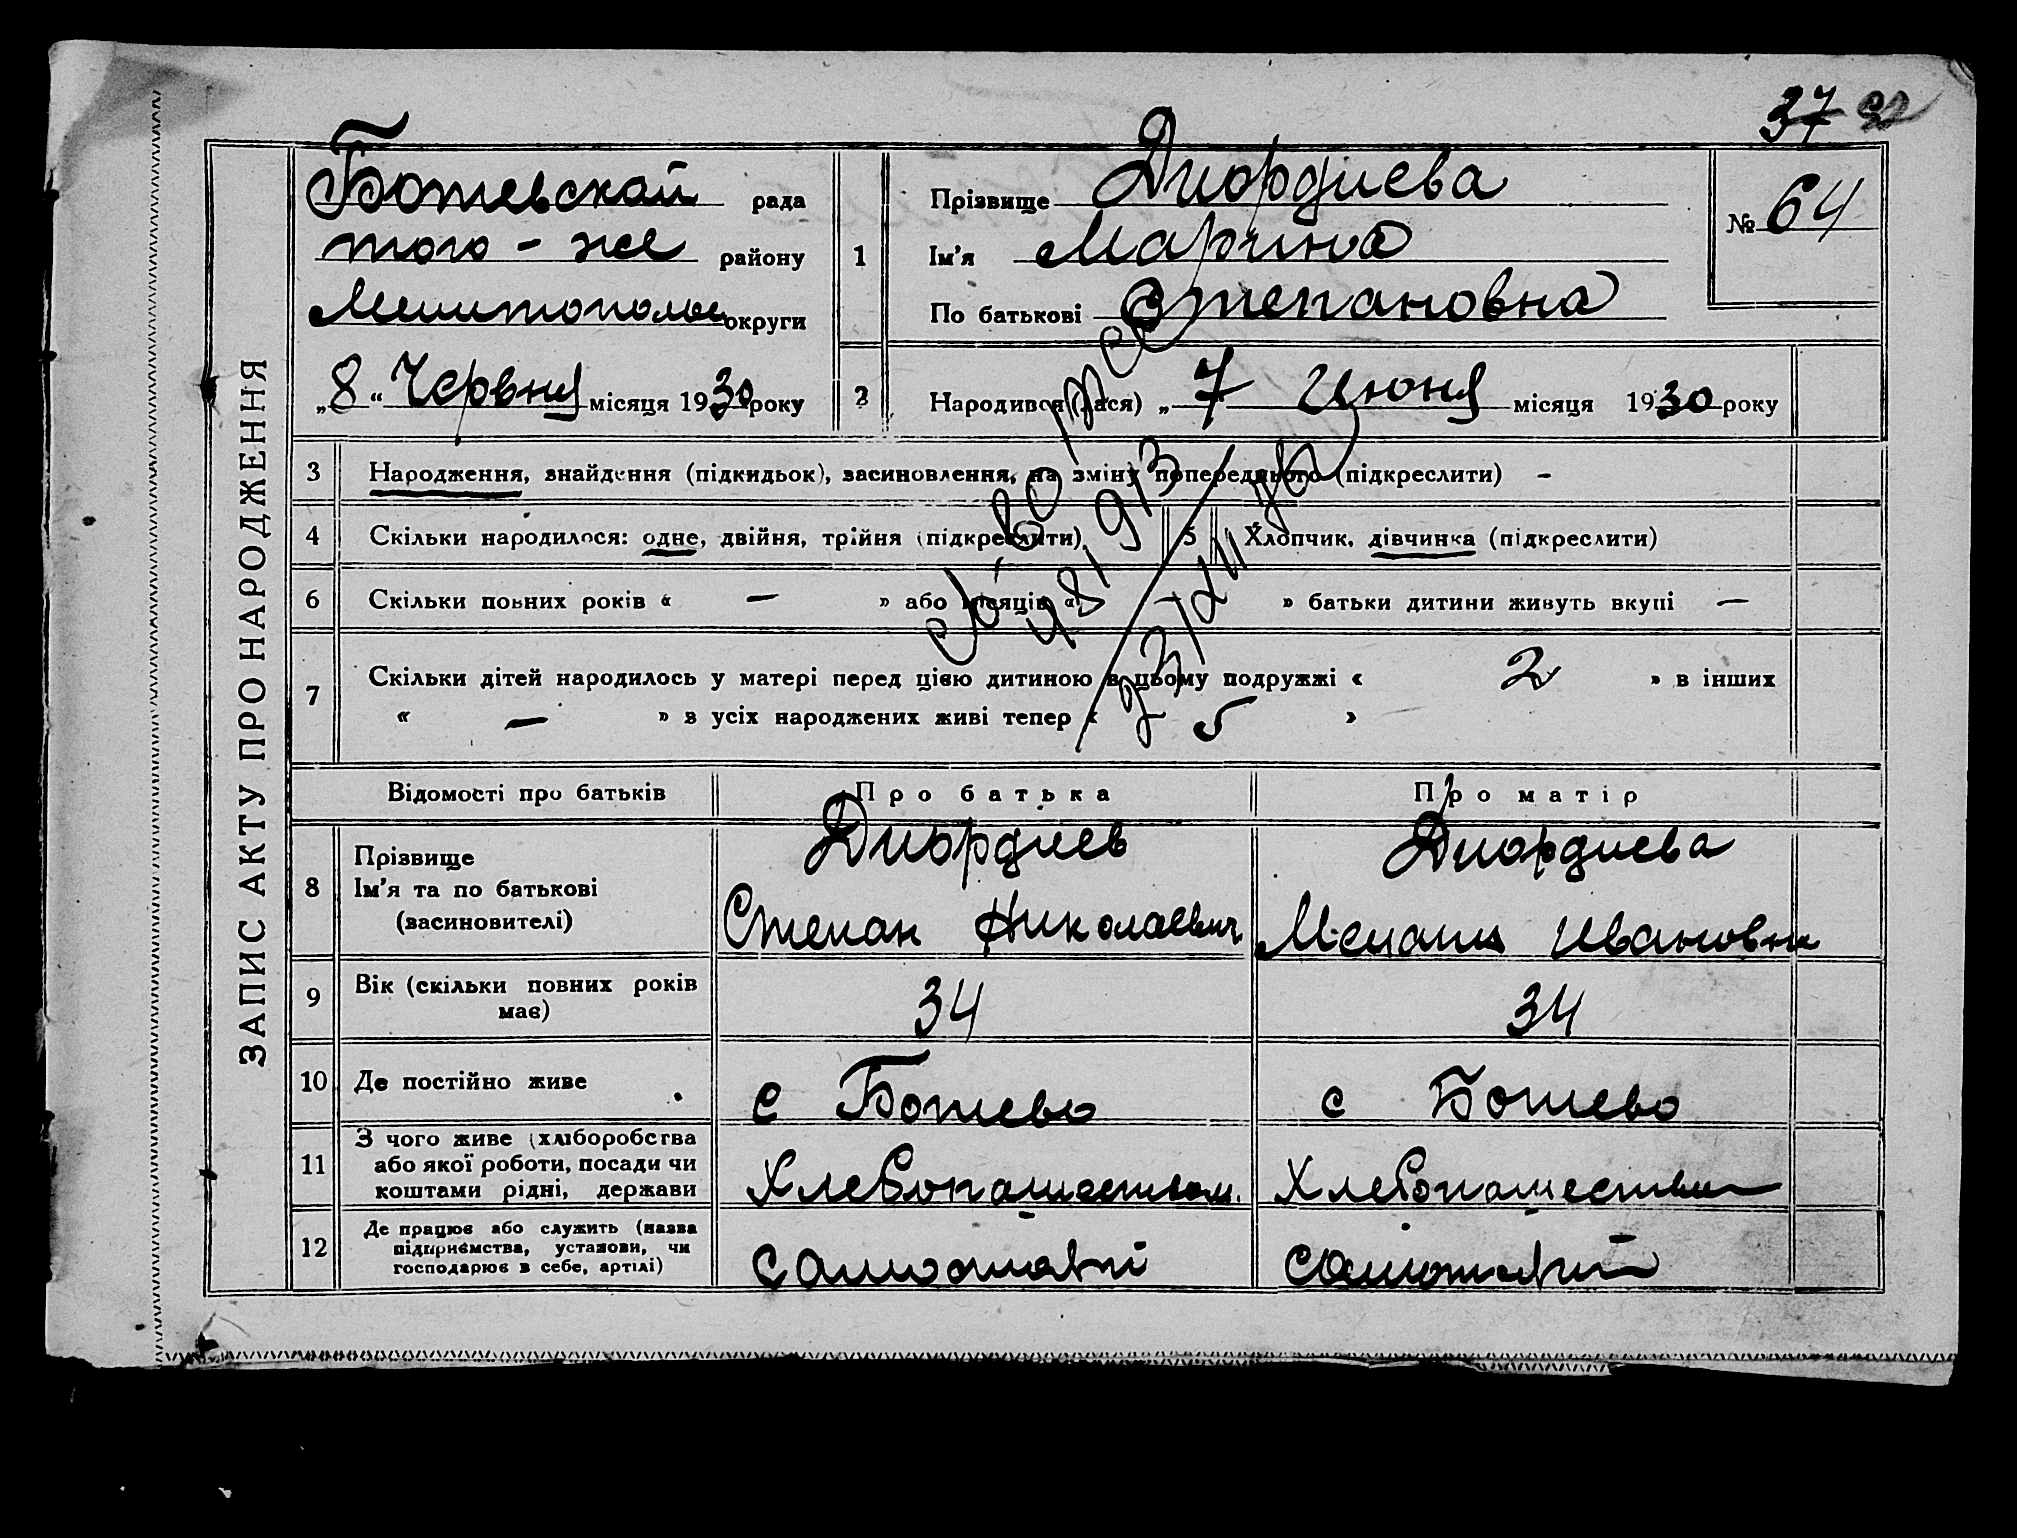 37
ЗАПИС АКТУ ПРО НАРОДЖЕННЯ
Ботевской рада
того-же району
округи
„8“ Червня місяця 1930 року
1
Прізвище Диордиева
Ім'я Марина
По батькові Степановна
№ 64
2
Народився (лася) „7 Июня місяця 1930 року
3 Народження, знайдення (підкидьок), засиновлення, на зміну попереднього (підкреслити) -
4 Скільки народилося: одне, двійня, трійня (підкреслити)
5 Хлопчик, дівчинка (підкреслити)
6 Скільки повних років « — » або місяців « — » батьки дитини живуть вкупі —
7 Скільки дітей народилось у матері перед цією дитиною в цьому подружжі « 2 » в інших
« — » в усіх народжених живі тепер « 5 »
Відомості про батьків
Про батька
Про матір
8 Прізвище
Ім'я та по батькові
(васиновителі)
Диордиев
Степан Николаевич
Диордиева
Ивановна
9 Вік (скільки повних років
має)
34
34
10 Де постійно живе
с Ботево
с Ботево
11 З чого живе (хліборобства
або якої роботи, посади чи
коштами рідні, держави
Хлебопашеством
Хлебопашеством
12 Де працює або служить (назва
підприємства, установи, чи
господарює в себе, артілі)